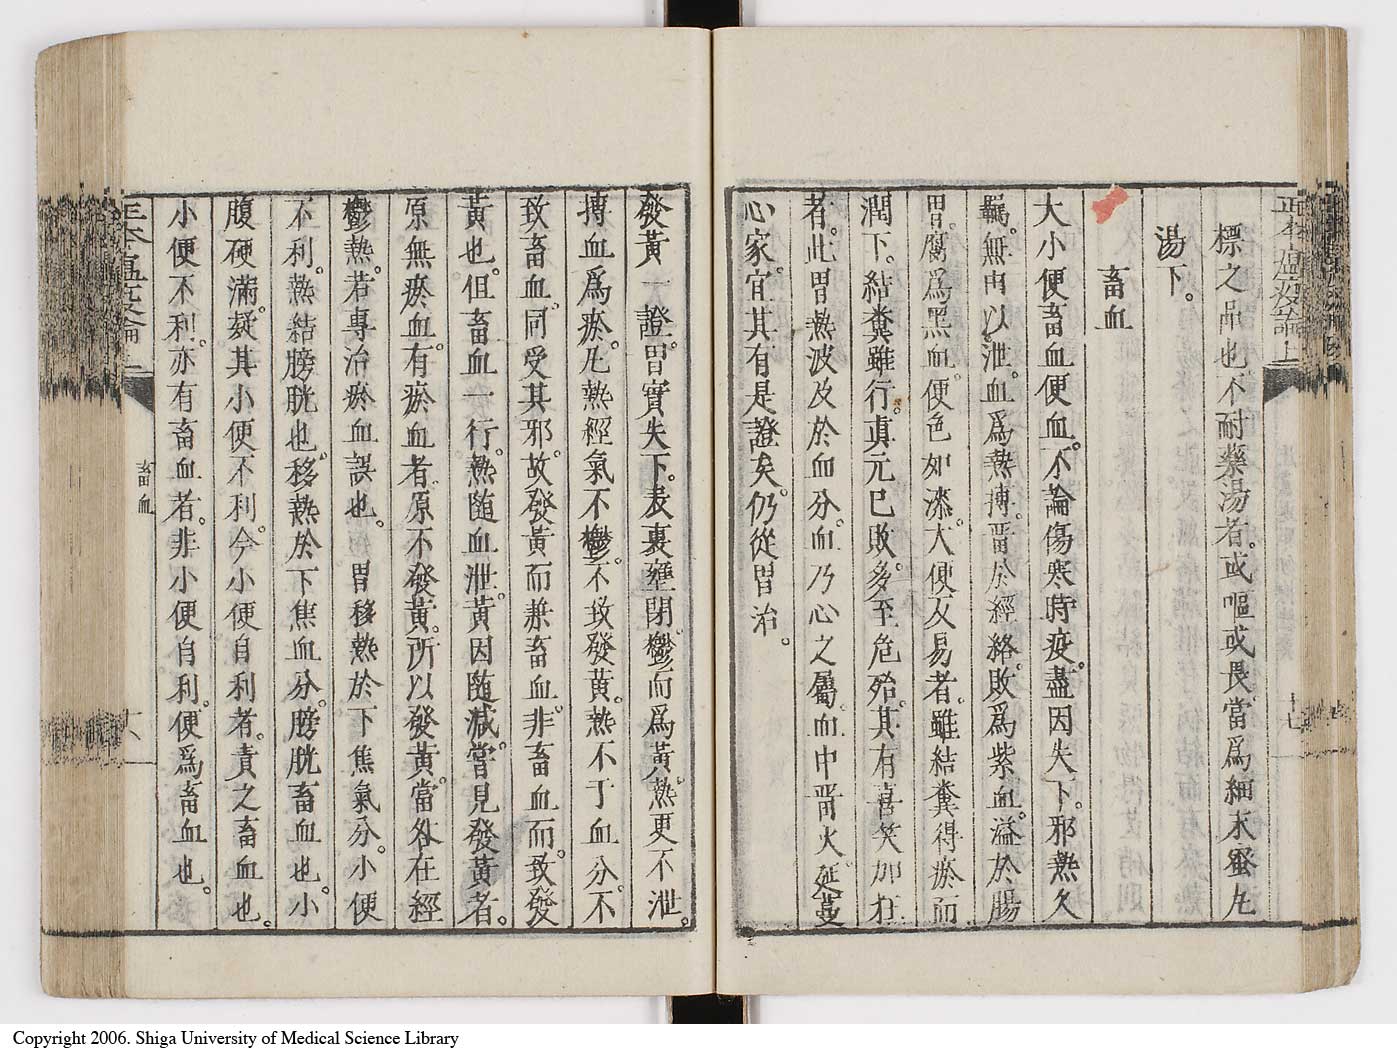 正本瘟疫論上
標之品也不耐藥湯者。或嘔或畏。當爲細末蜜丸
湯下。
畜血
大小便畜血便血。不論傷寒時疫。盡因失下。邪熱久
羈。無由以泄。血爲熱搏。畱於經絡。敗爲紫血。溢於腸
胃。腐爲黑血。便色如漆。大便反易者。雖結糞得瘀而
潤下。結糞雖行。眞元已敗。多至危殆。其有喜笑如狂
者。此胃熱波及於血分。血乃心之屬。血中畱火。延蔓
心家。宜其有是證矣。仍從胃治。
十七
發黃一證。胃實失下。表裏壅閉。鬱而爲黃。熱更不泄。
搏血爲瘀。凡熱經氣不鬱。不致發黃。熱不干血分。不
致畜血。同受其邪。故發黃而兼畜血。非畜血而。致發
黃也。但畜血一行。熱隨血泄。黃因隨減。嘗見發黃者。
原無瘀血。有瘀血者。原不發黃。所以發黃。當咎在經
鬱熱。若專治瘀血誤也。胃移熱於下焦氣分。小便
不利。熱結膀胱也。移熱於下焦血分。膀胱畜血也。小
腹硬滿。疑其小便不利。今小便自利者。責之畜血也。
小便不利。亦有畜血者。非小便自利。便爲畜血也。
正本瘟疫論上
畜血
十八
Copyright 2006. Shiga University of Medical Science Library